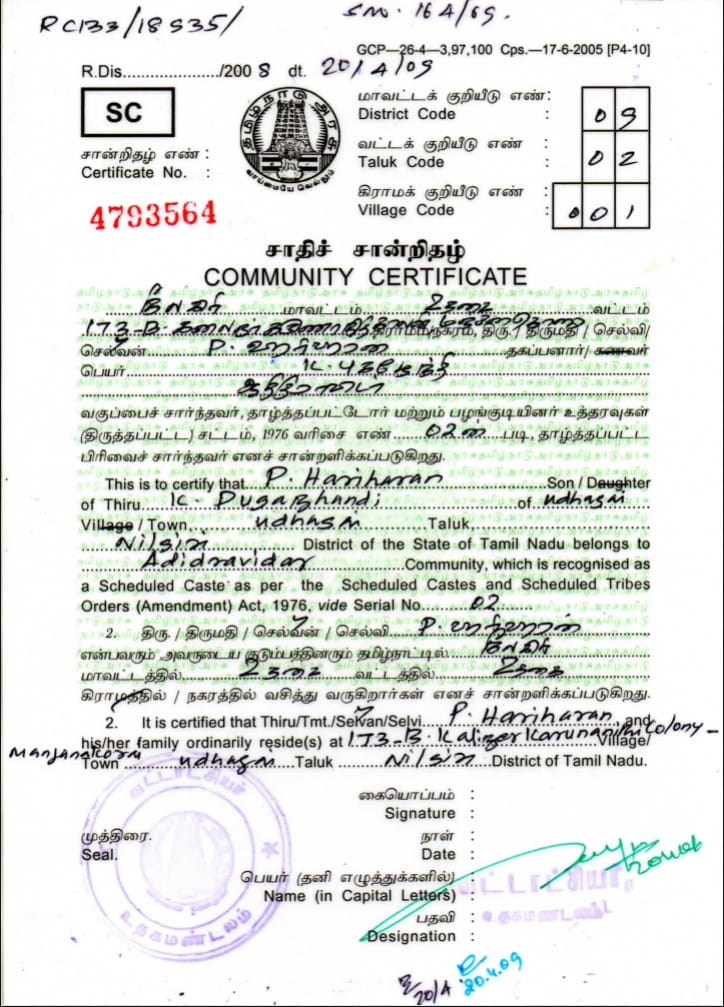 RC133/18935/
SNO. 164/09.
GCP—26-4—3,97,100 Cps.—17-6-2005 [P4-10]
R.Dis....................../2008 dt. 20/4/09
SC
தமிழ்நாடு அரசு
வாய்மையே வெல்லும்
மாவட்டக் குறியீடு எண் :
District Code : 09
வட்டக் குறியீடு எண் :
Taluk Code : 02
கிராமக் குறியீடு எண் :
Village Code : 001
சான்றிதழ் எண் :
Certificate No. :
4793564
சாதிச் சான்றிதழ்
COMMUNITY CERTIFICATE
நீலகிரி மாவட்டம் உதகை வட்டம்
173-B கிராமம்/நகரம், திரு. / திருமதி / செல்வி/
செல்வன் P. ஹரிஹரன் தகப்பனார்/ கணவர்
பெயர் K. புகழேந்தி
ஆதிதிராவிடர்
வகுப்பைச் சார்ந்தவர், தாழ்த்தப்பட்டோர் மற்றும் பழங்குடியினர் உத்தரவுகள்
(திருத்தப்பட்ட) சட்டம், 1976 வரிசை எண் 02ன் படி, தாழ்த்தப்பட்ட
பிரிவைச் சார்ந்தவர் எனச் சான்றளிக்கப்படுகிறது.
This is to certify that P. Hariharan Son / Daughter
of Thiru K. Pugazhandi of Udhagai
Village / Town, Udhagai Taluk,
Nilgiri District of the State of Tamil Nadu belongs to
Adidravidar Community, which is recognised as
a Scheduled Caste as per the Scheduled Castes and Scheduled Tribes
Orders (Amendment) Act, 1976, vide Serial No. 02
2. திரு / திருமதி / செல்வன் / செல்வி P. ஹரிஹரன்
என்பவரும் அவருடைய குடும்பத்தினரும் தமிழ்நாட்டில் நீலகிரி
மாவட்டத்தில் உதகை வட்டத்தில் உதகை
கிராமத்தில் / நகரத்தில் வசித்து வருகிறார்கள் எனச் சான்றளிக்கப்படுகிறது.
2. It is certified that Thiru/Tmt./Selvan/Selvi P. Hariharan and
his/her family ordinarily reside(s) at 173-B. Kalizer Karunanithi Colony - Village/
Manjanakorai
Town Udhagai Taluk Nilgiri District of Tamil Nadu.
வட்டாட்சியர்
உதகமண்டலம்
கையொப்பம் :
Signature :
முத்திரை.
Seal.
நாள் :
Date :
பெயர் (தனி எழுத்துக்களில்) :
Name (in Capital Letters) :
பதவி :
Designation :
வட்டாட்சியர்,
உதகமண்டலம்
20/4
20.4.09